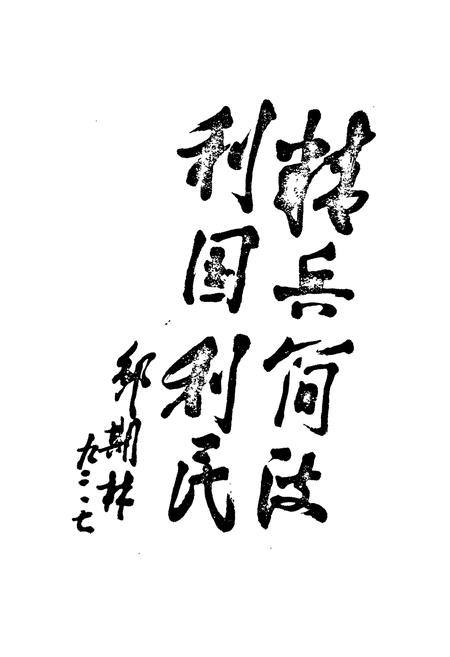 精兵简政
利国利民
邹期林
九二、七